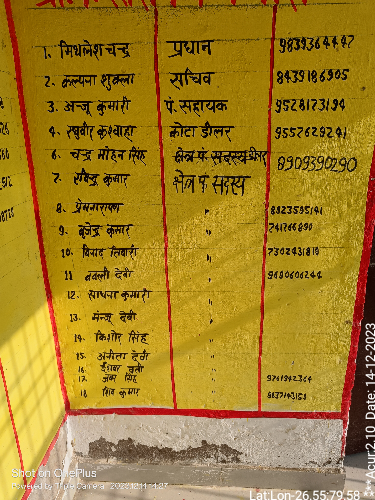 1. मिथलेश चन्द्र प्रधान 9839364447
2. कल्पना शुक्ला सचिव 8439186905
3. अन्जू कुमारी पं. सहायक 9528123194
4. रघुवीर कुश्वाहा कोटा डीलर 9557629241
6. चन्द्र मोहन सिंह क्षेत्र पं. सदस्य 8909390290
7. रविन्द्र कुमार क्षेत्र पं सदस्य
8. प्रेमनारायण " 8823595141
9. बृजेन्द्र कुमार " 741266890
10. विनोद तिवारी " 7302431819
11 बबली देवी " 9690606244
12. साधना कुमारी "
13. मन्जू देवी "
14. किशोर सिंह "
15. अनीता देवी "
16.
17. सिंह " 9761942364
18 शिव कुमार " 8637143151
Shot on OnePlus
Powered by Triple Camera
Acur:2.10 Date: 14-12-2023
Lat:Lon-26.55.79.58